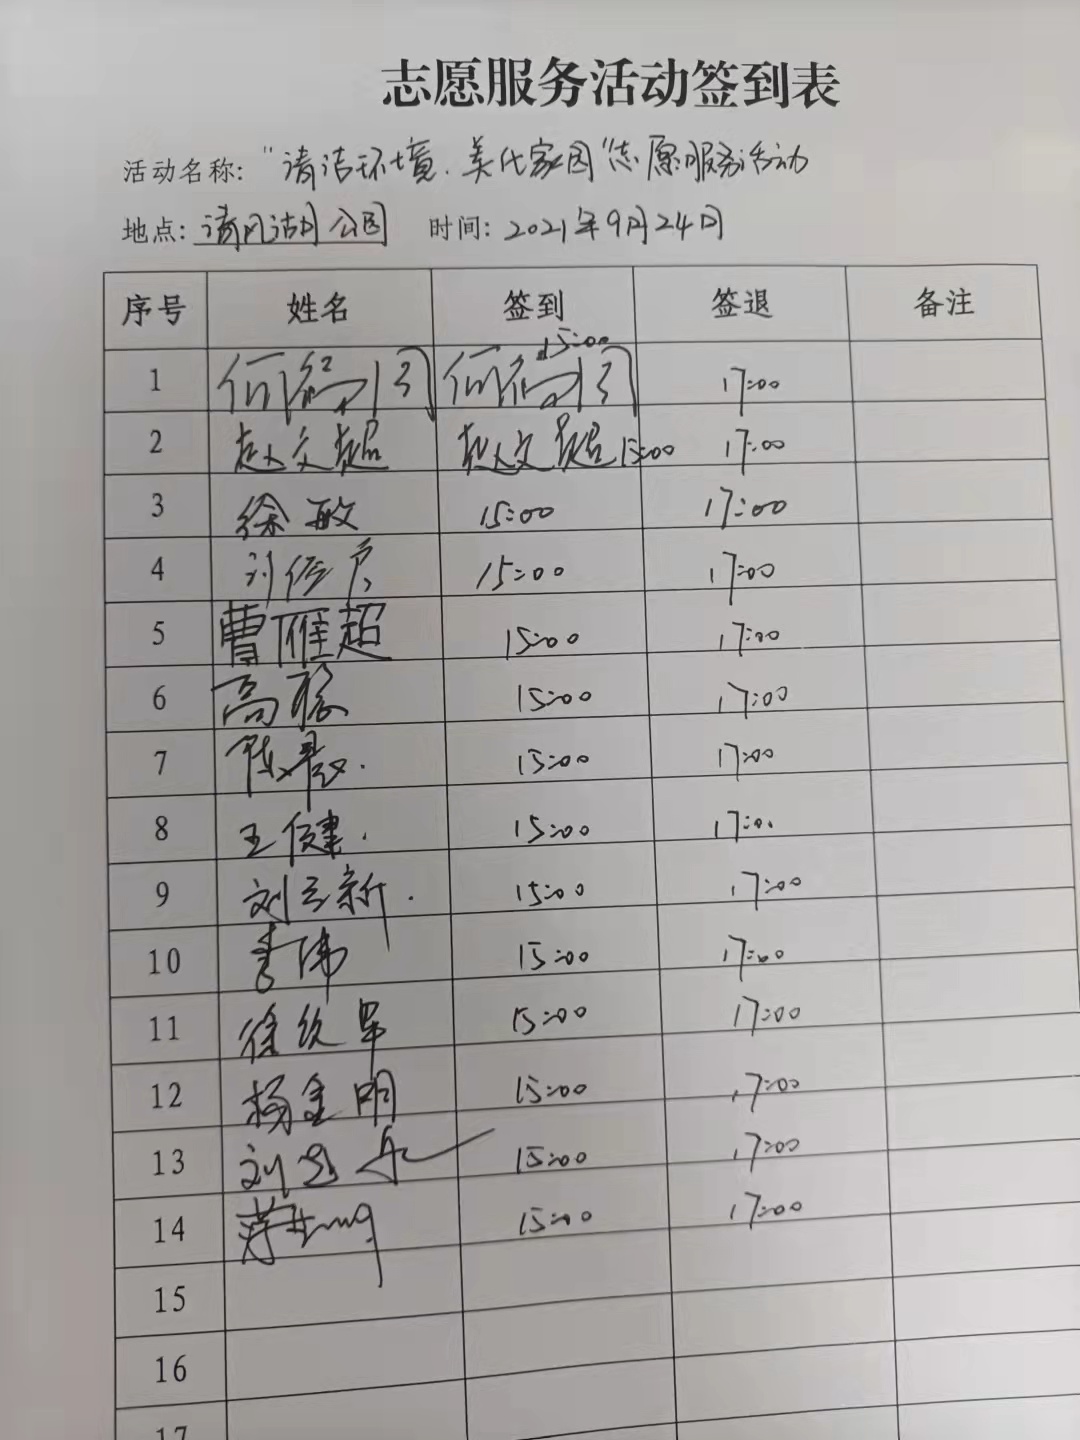 志愿服务活动签到表
活动名称: "清洁环境.美化家园"志愿服务活动
地点: 清风湖公园 时间: 2021年9月24日
序号 姓名 签到 签退 备注
1 15:00 17:00
2 赵文超 赵文超 15:00 17:00
3 徐敏 15:00 17:00
4 15:00 17:00
5 曹雁超 15:00 17:00
6 高稳 15:00 17:00
7 15:00 17:00
8 王健. 15:00 17:00
9 刘云新. 15:00 17:00
10 李伟 15:00 17:00
11 15:00 17:00
12 杨金明 15:00 17:00
13 15:00 17:00
14 15:00 17:00
15
16
17